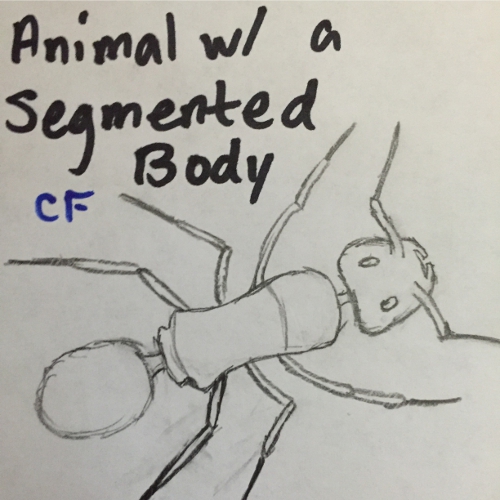 Animal w/ a
Segmented
Body
CF